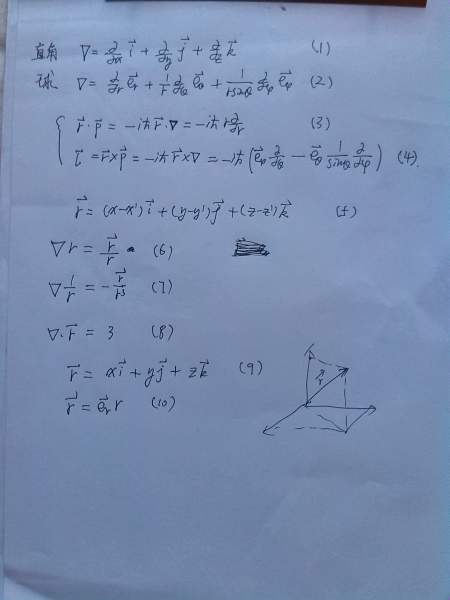 直角 ∇ = ∂/∂x i⃗ + ∂/∂y j⃗ + ∂/∂z k⃗ (1)
球 ∇ = ∂/∂r e⃗r + 1/r ∂/∂θ e⃗θ + 1/(r sinθ) ∂/∂φ e⃗φ (2)
r⃗·p⃗ = -iħ r⃗·∇ = -iħ r ∂/∂r (3)
l⃗ = r⃗×p⃗ = -iħ r⃗×∇ = -iħ (e⃗φ ∂/∂θ - e⃗θ 1/sinθ ∂/∂φ) (4).
r⃗ = (x-x')i⃗ + (y-y')j⃗ + (z-z')k⃗ (5)
∇r = r⃗/r (6)
∇ 1/r = - r⃗/r³ (7)
∇·r⃗ = 3 (8)
r⃗ = xi⃗ + yj⃗ + zk⃗ (9)
r⃗ = e⃗r r (10)
r⃗